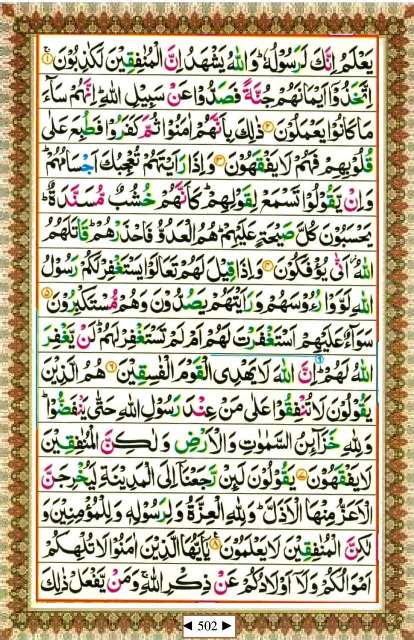 يَعْلَمُ اِنَّكَ لَرَسُوْلُهٗ ؕ وَاللّٰهُ يَشْهَدُ اِنَّ الْمُنٰفِقِيْنَ لَكٰذِبُوْنَ ۚ﴿۱﴾
اِتَّخَذُوْۤا اَيْمَانَهُمْ جُنَّةً فَصَدُّوْا عَنْ سَبِيْلِ اللّٰهِ ؕ اِنَّهُمْ سَآءَ
مَا كَانُوْا يَعْمَلُوْنَ ﴿۲﴾ ذٰلِكَ بِاَنَّهُمْ اٰمَنُوْا ثُمَّ كَفَرُوْا فَطُبِعَ عَلٰى
قُلُوْبِهِمْ فَهُمْ لَا يَفْقَهُوْنَ ﴿۳﴾ وَاِذَا رَاَيْتَهُمْ تُعْجِبُكَ اَجْسَامُهُمْ ؕ
وَاِنْ يَّقُوْلُوْا تَسْمَعْ لِقَوْلِهِمْ ؕ كَاَنَّهُمْ خُشُبٌ مُّسَنَّدَةٌ ؕ
يَحْسَبُوْنَ كُلَّ صَيْحَةٍ عَلَيْهِمْ ؕ هُمُ الْعَدُوُّ فَاحْذَرْهُمْ ؕ قَاتَلَهُمُ
اللّٰهُ ۫ اَنّٰى يُؤْفَكُوْنَ ﴿۴﴾ وَاِذَا قِيْلَ لَهُمْ تَعَالَوْا يَسْتَغْفِرْ لَكُمْ رَسُوْلُ
اللّٰهِ لَوَّوْا رُءُوْسَهُمْ وَرَاَيْتَهُمْ يَصُدُّوْنَ وَهُمْ مُّسْتَكْبِرُوْنَ ﴿۵﴾
سَوَآءٌ عَلَيْهِمْ اَسْتَغْفَرْتَ لَهُمْ اَمْ لَمْ تَسْتَغْفِرْ لَهُمْ ؕ لَنْ يَّغْفِرَ
اللّٰهُ لَهُمْ ؕ اِنَّ اللّٰهَ لَا يَهْدِى الْقَوْمَ الْفٰسِقِيْنَ ﴿۶﴾ هُمُ الَّذِيْنَ
يَقُوْلُوْنَ لَا تُنْفِقُوْا عَلٰى مَنْ عِنْدَ رَسُوْلِ اللّٰهِ حَتّٰى يَنْفَضُّوْا ؕ
وَلِلّٰهِ خَزَآئِنُ السَّمٰوٰتِ وَالْاَرْضِ وَلٰكِنَّ الْمُنٰفِقِيْنَ
لَا يَفْقَهُوْنَ ﴿۷﴾ يَقُوْلُوْنَ لَئِنْ رَّجَعْنَاۤ اِلَى الْمَدِيْنَةِ لَيُخْرِجَنَّ
الْاَعَزُّ مِنْهَا الْاَذَلَّ ؕ وَلِلّٰهِ الْعِزَّةُ وَلِرَسُوْلِهٖ وَلِلْمُؤْمِنِيْنَ وَ
لٰكِنَّ الْمُنٰفِقِيْنَ لَا يَعْلَمُوْنَ ﴿۸﴾ يٰۤاَيُّهَا الَّذِيْنَ اٰمَنُوْا لَا تُلْهِكُمْ
اَمْوَالُكُمْ وَلَاۤ اَوْلَادُكُمْ عَنْ ذِكْرِ اللّٰهِ ۚ وَمَنْ يَّفْعَلْ ذٰلِكَ
◄ 502 ►